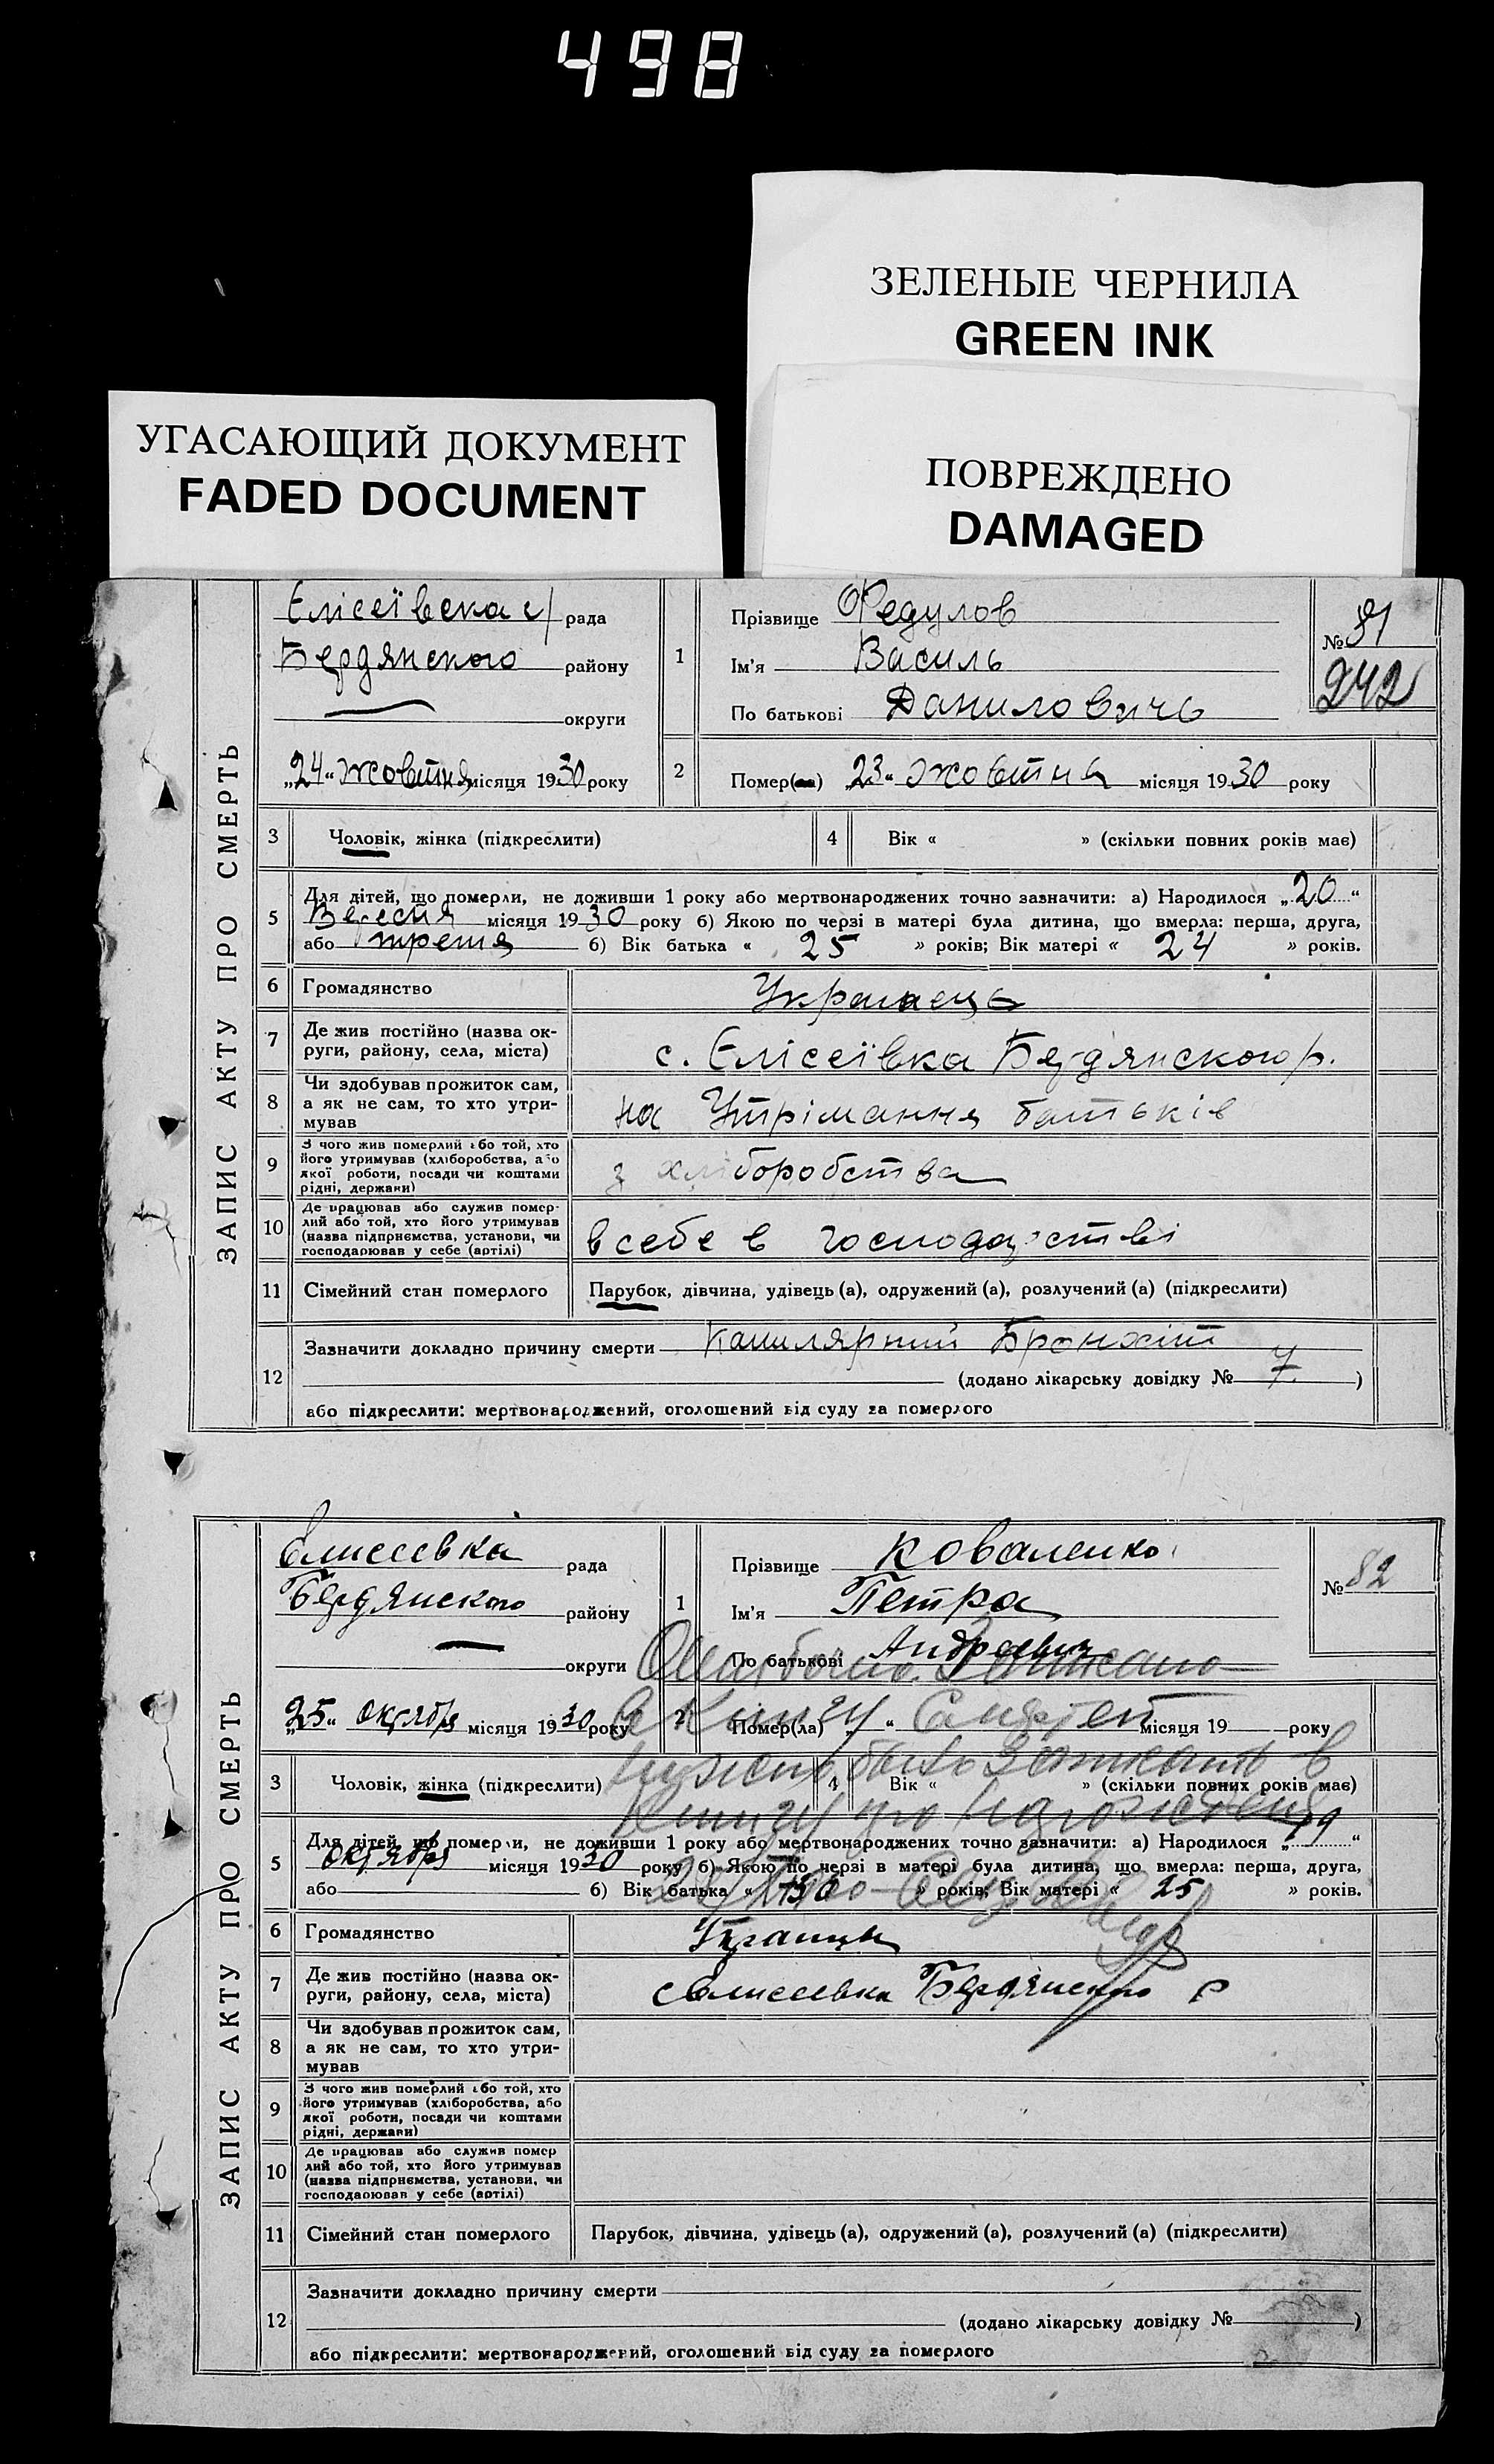 498
ЗЕЛЕНЫЕ ЧЕРНИЛА
GREEN INK
УГАСАЮЩИЙ ДОКУМЕНТ
FADED DOCUMENT
ПОВРЕЖДЕНО
DAMAGED
ЗАПИС АКТУ ПРО СМЕРТЬ
Єлісеївска с/ рада
Бердянского району
округи
„24“ жовтня місяця 1930 року
1
Прізвище Федулов
Ім'я Василь
По батькові Даниловичь
№ 81
242
2 Помер(ла) „23“ жовтня місяця 1930 року
3 Чоловік, жінка (підкреслити)
4 Вік « » (скільки повних років має)
5 Для дітей, що померли, не доживши 1 року або мертвонароджених точно зазначити: а) Народилося „20“
Вересня місяця 1930 року б) Якою по черзі в матері була дитина, що вмерла: перша, друга,
або третя б) Вік батька « 25 » років; Вік матері « 24 » років.
6 Громадянство Украінець
7 Де жив постійно (назва ок-
руги, району, села, міста) с. Єлісеївка Бердянского р.
8 Чи здобував прожиток сам,
а як не сам, то хто утри-
мував на Утрімання батьків
9 З чого жив померлий або той, хто
його утримував (хліборобства, або
якої роботи, посади чи коштами
рідні, держави) з хліборобства
10 Де працював або служив помер-
лий або той, хто його утримував
(назва підприємства, установи, чи
господарював у себе (артілі) в себе в господарстві
11 Сімейний стан померлого Парубок, дівчина, удівець (а), одружений (а), розлучений (а) (підкреслити)
12 Зазначити докладно причину смерти Капилярний Бронхіт
(додано лікарську довідку № 7)
або підкреслити: мертвонароджений, оголошений від суду за померлого
ЗАПИС АКТУ ПРО СМЕРТЬ
Елисеевка рада
Бердянского району
округи
„25“ октября місяця 1930 року
1
Прізвище Коваленко
Ім'я Петра
По батькові Андреевич
№ 82
Ошибочно Записано
в книгу Смертей
нужно было записать в
книгу про народження
2 Помер(ла) „ “ місяця 19 року
3 Чоловік, жінка (підкреслити)
4 Вік « » (скільки повних років має)
5 Для дітей, що померли, не доживши 1 року або мертвонароджених точно зазначити: а) Народилося „19“
октября місяця 1930 року б) Якою по черзі в матері була дитина, що вмерла: перша, друга,
або б) Вік батька « » років; Вік матері « 25 » років.
6 Громадянство
7 Де жив постійно (назва ок-
руги, району, села, міста) с Елисеевка Бердянского р
8 Чи здобував прожиток сам,
а як не сам, то хто утри-
мував
9 З чого жив померлий або той, хто
його утримував (хліборобства, або
якої роботи, посади чи коштами
рідні, держави)
10 Де працював або служив помер
лий або той, хто його утримував
(назва підприємства, установи, чи
господарював у себе (артілі)
11 Сімейний стан померлого Парубок, дівчина, удівець (а), одружений (а), розлучений (а) (підкреслити)
12 Зазначити докладно причину смерти
(додано лікарську довідку № )
або підкреслити: мертвонароджений, оголошений від суду за померлого